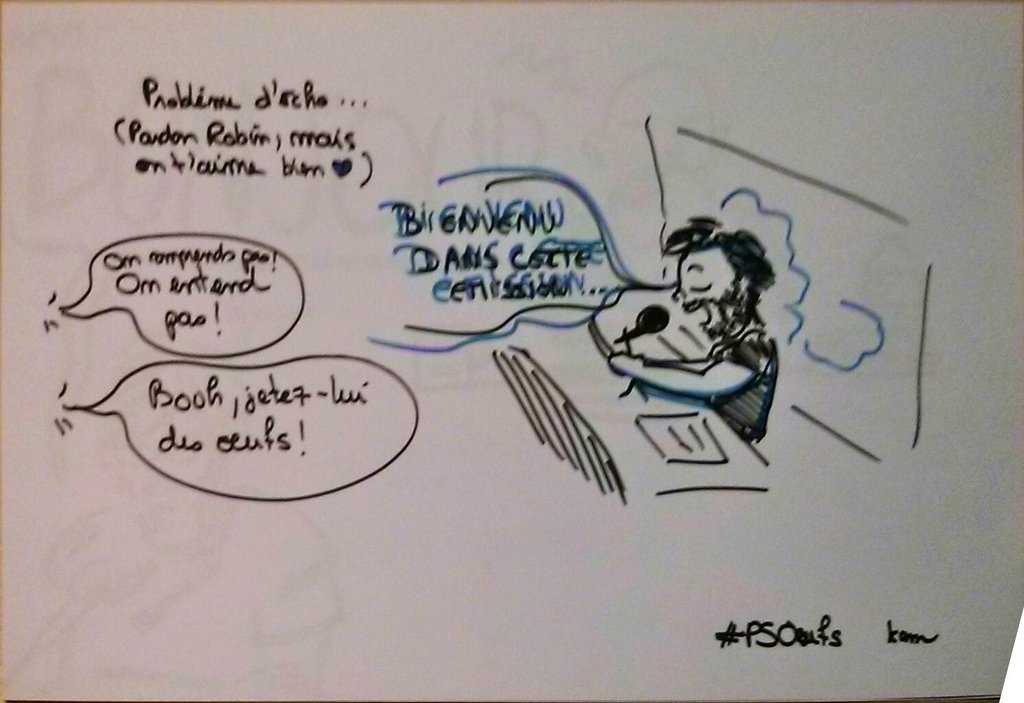 Problème d'echo...
(Pardon Robin, mais
on t'aime bien ♥)
BIENVENU
DANS CETTE
EMISSION...
On comprends pas!
On entend
pas!
Booh, jetez-lui
des œufs!
#PSOeufs kam